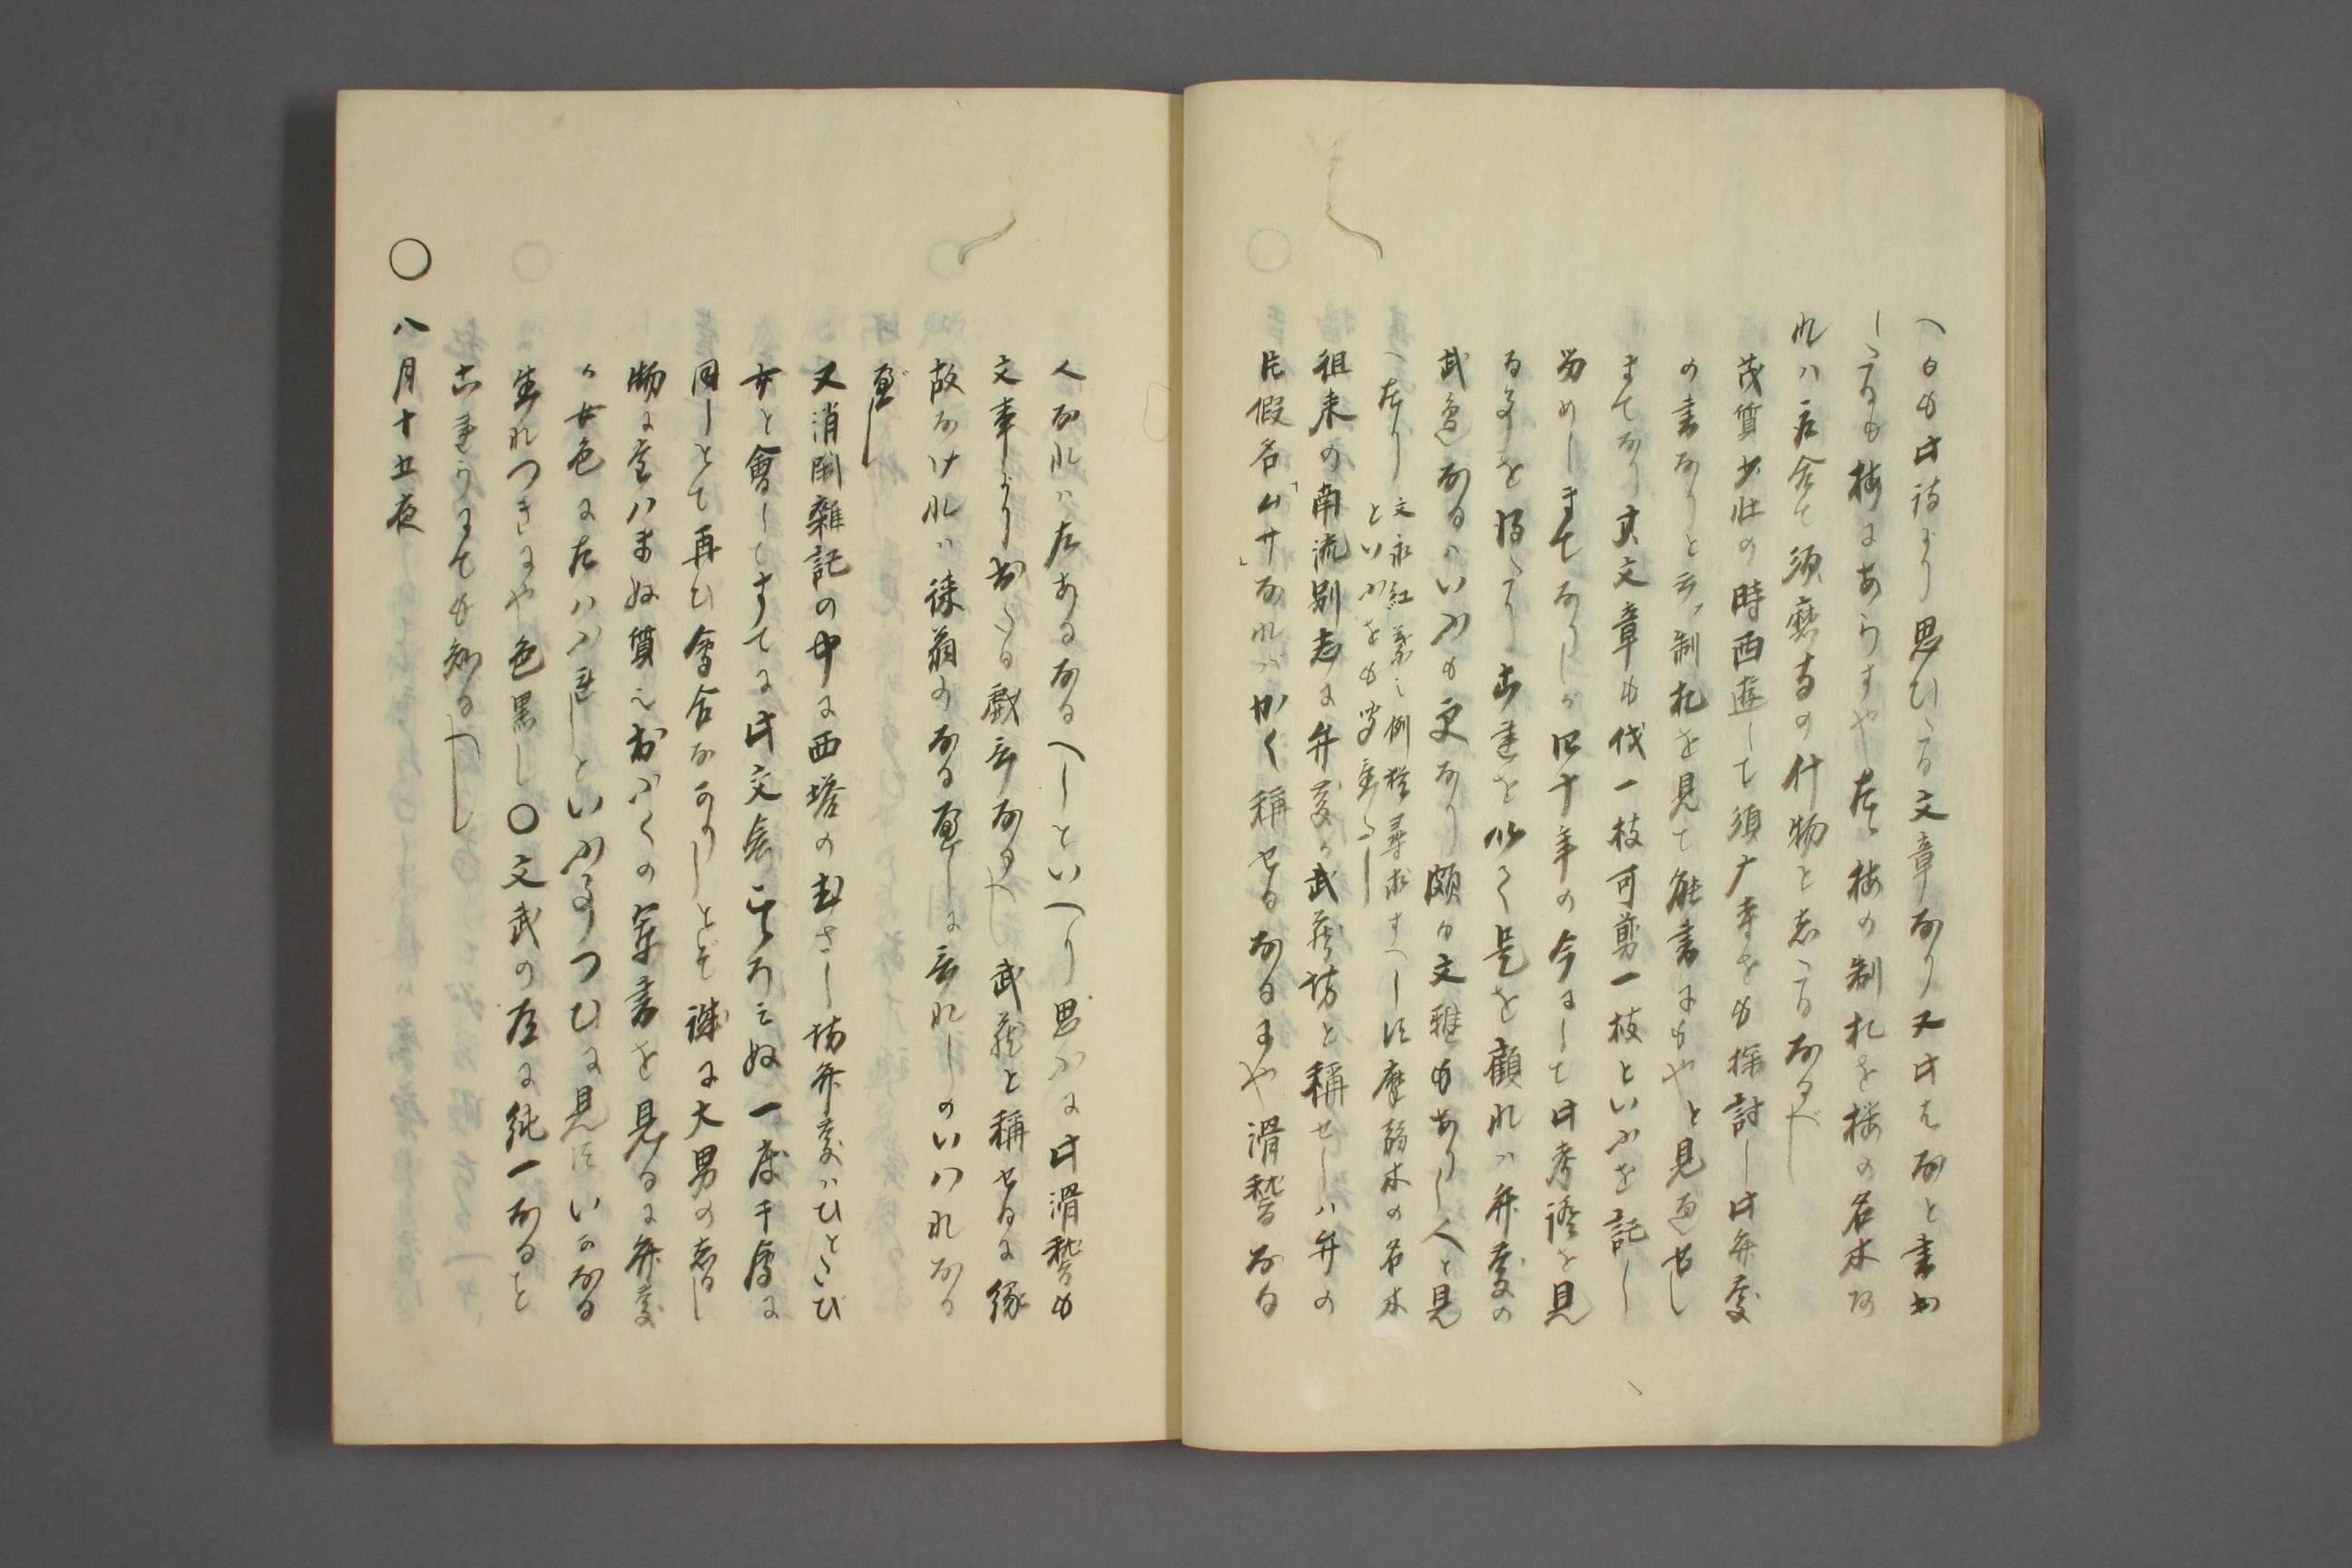 へるも此詩より思ひたる文章なり又此はなと書か
したるも梅にあらすや左に梅の制札を桜の名木な
れハ居合て須磨寺の什物と志たるなるべし
茂質少壮の時西遊して須广寺をも探討し此弁慶
の書なりと云ッ制札を見て能書にもやと見過せし
まてなり其文章も伐一枝可剪一枝といふを記し
留めしまてなりしか四十年の今にして此考證を見
る事を得たり古畫を以て是を顧れハ弁慶の
武邊なるハいふも更なり頗る文雅もありし人と見
へたり
文永紅葉之例猶尋求すへし須磨弱木の名木
といふをも
徂来の南流別志に弁慶か武蔵坊と稱せしハ弁の
片假名「ムサ」なれバかく稱せるなるにや滑稽なる
人なれハ左あるなるへしといへり思ふに此滑稽も
文事より出たる戯言なるへし武蔵と稱せるに縁
故なけれハ徠翁のなる尋しに云れしのいハれなる
べし
又消閑雑記の中に西塔の武さし坊弁慶ハひとたび
女と會してすてに此交会こころみぬ一度千度に
同しとて再ひ會合なかりしとぞ誠に大男の志るし
物に尽ハまぬ質也おゝくの軍書を見るに弁慶
か女色に左ハふれしといふ事つひに見ずいかなる
生れつきにや色黒し○文武の左に純一なると
古畫らにても知るへし
○八月十五夜